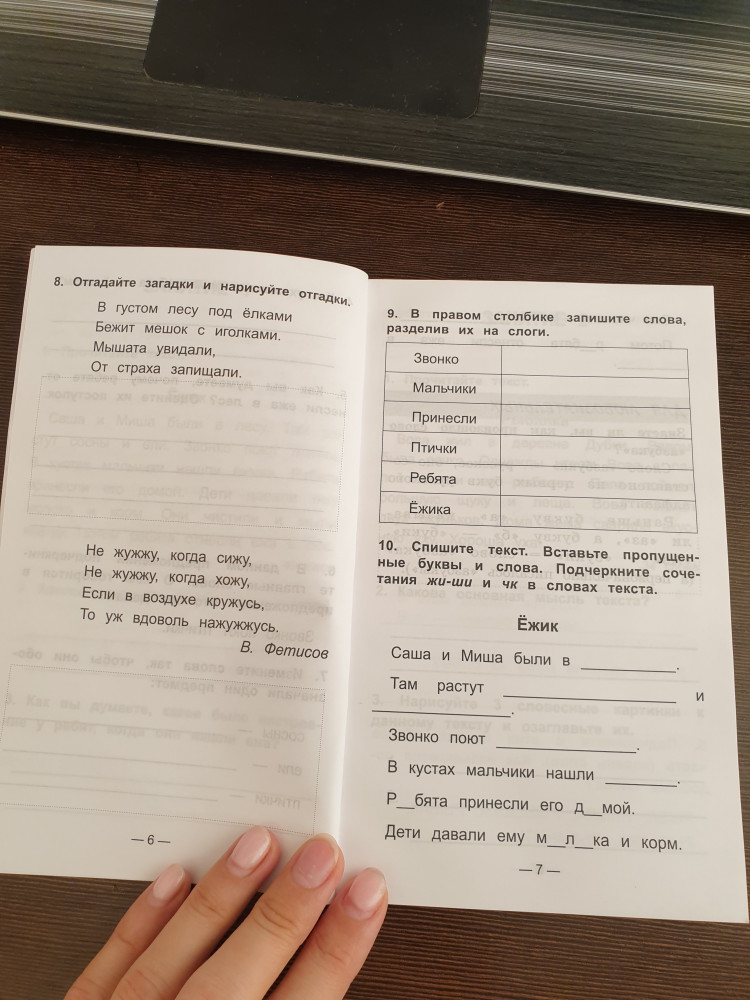 8. Отгадайте загадки и нарисуйте отгадки.
В густом лесу под ёлками
Бежит мешок с иголками.
Мышата увидали,
От страха запищали.
Не жужжу, когда сижу,
Не жужжу, когда хожу,
Если в воздухе кружусь,
То уж вдоволь нажужжусь.
В. Фетисов
— 6 —
9. В правом столбике запишите слова,
разделив их на слоги.
Звонко
Мальчики
Принесли
Птички
Ребята
Ёжика
10. Спишите текст. Вставьте пропущен-
ные буквы и слова. Подчеркните соче-
тания жи-ши и чк в словах текста.
Ёжик
Саша и Миша были в ___________.
Там растут ____________________ и
________________.
Звонко поют ________________.
В кустах мальчики нашли ________.
Р__бята принесли его д__мой.
Дети давали ему м__л__ка и корм.
— 7 —